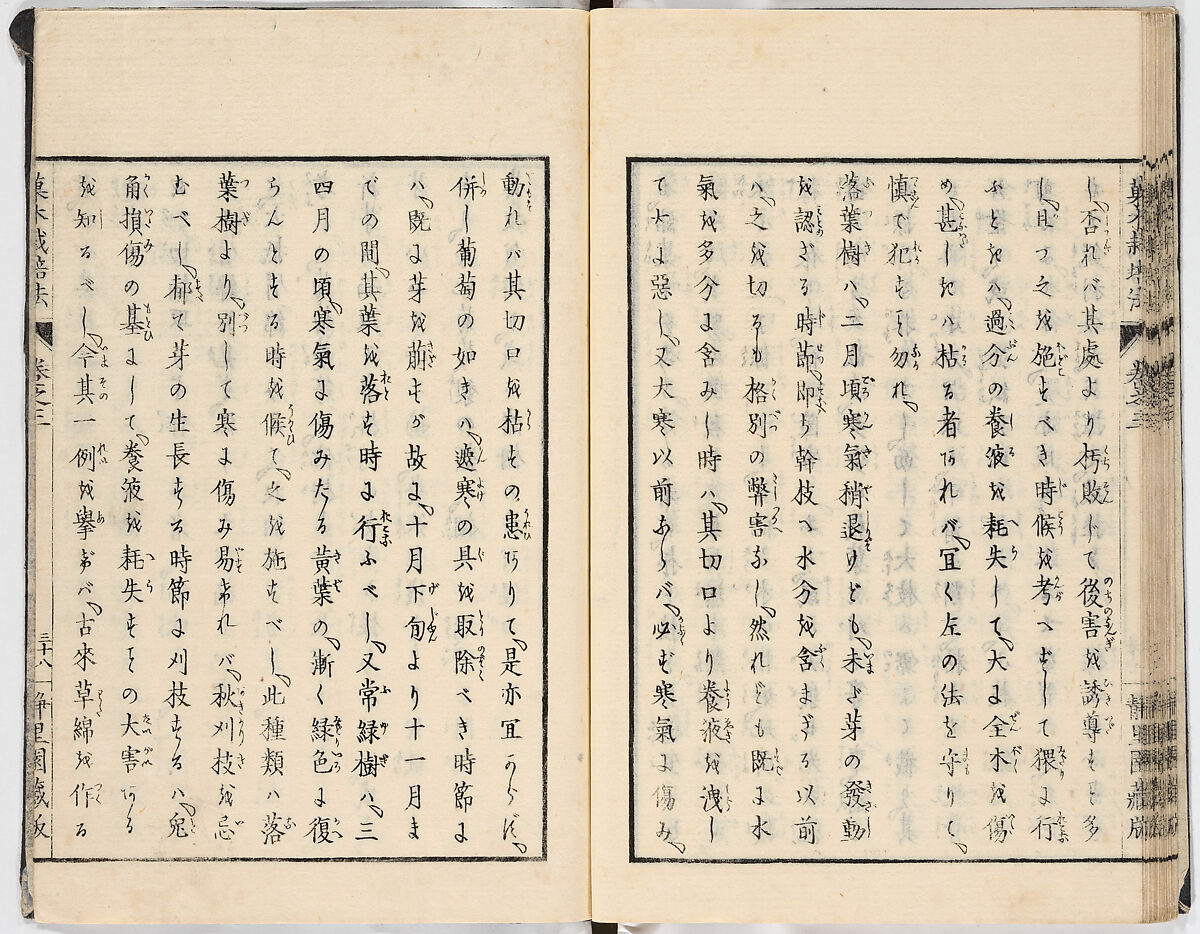 し、否れバ其處より朽敗して後害を誘導もこと多
し、且つ之を施すべき時候を考へずして猥に行
ふときハ、過分の養液を耗失して、大に全木を傷
め、甚しきハ枯る者あれバ、宜く左の法を守りて、
慎で犯すこと勿れ、
落葉樹ハ、二月頃寒氣稍退けども、未だ芽の發動
を認ざる時節、即ち幹枝へ水分を含まざる以前
ハ、之を切るも格別の弊害なし、然れども既に水
氣を多分に含みし時ハ、其切口より養液を洩し
て大に惡し、又大寒以前ならバ、必ず寒氣に傷み、
動れバ其切口を枯すの患ありて、是亦宜からず、
併し葡萄の如きハ、避寒の具を取除べき時節に
ハ、既に芽を萠すが故に、十月下旬より十一月ま
での間、其葉を落す時に行ふべし、又常緑樹ハ、三
四月の頃、寒氣に傷みたる黄葉の、漸く緑色に復
らんとする時を候て、之を施すべし、此種類ハ落
葉樹より、別して寒に傷み易けれバ、秋刈枝を忌
むべし、都て芽の生長する時節に刈枝するハ、兎
角損傷の基にして、養液を耗失すことの大害ある
を知るべし、今其一例を擧げバ、古來草綿を作る
菓木栽培法
卷之三
三十八
静里園藏版